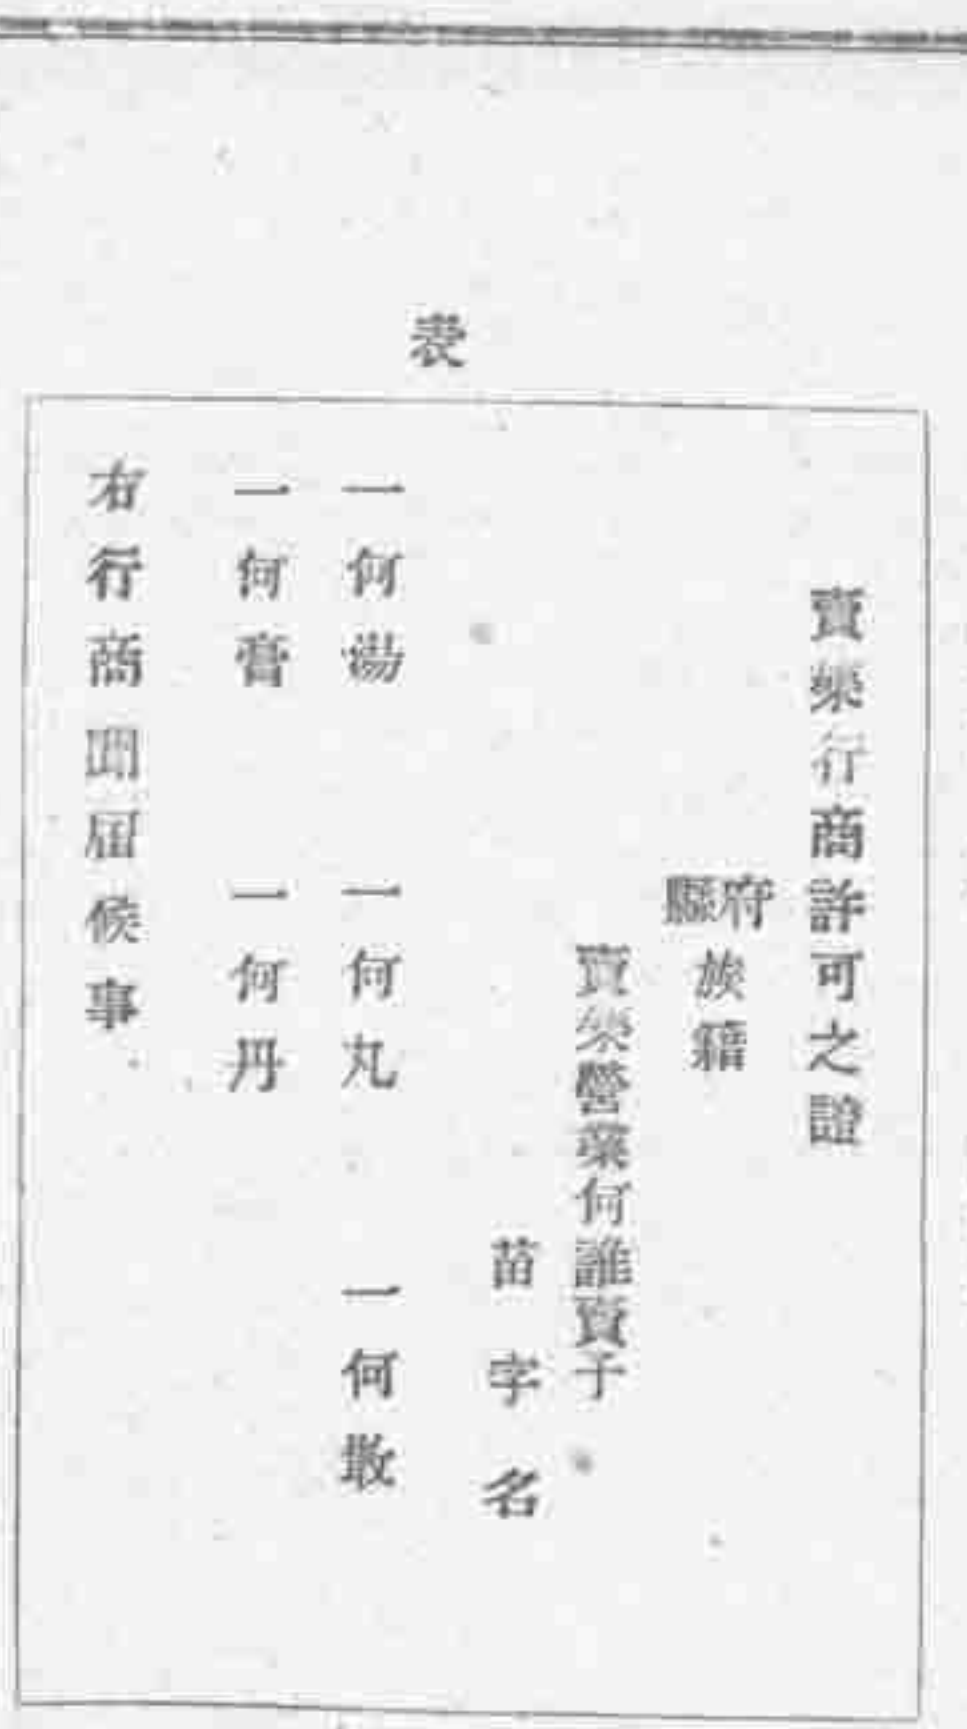 表
賣藥行商許可之證
府縣族籍
賣藥營業何誰賣子
苗字名
一何湯 一何丸 一何散
一何膏 一何丹
右行商聞届候事